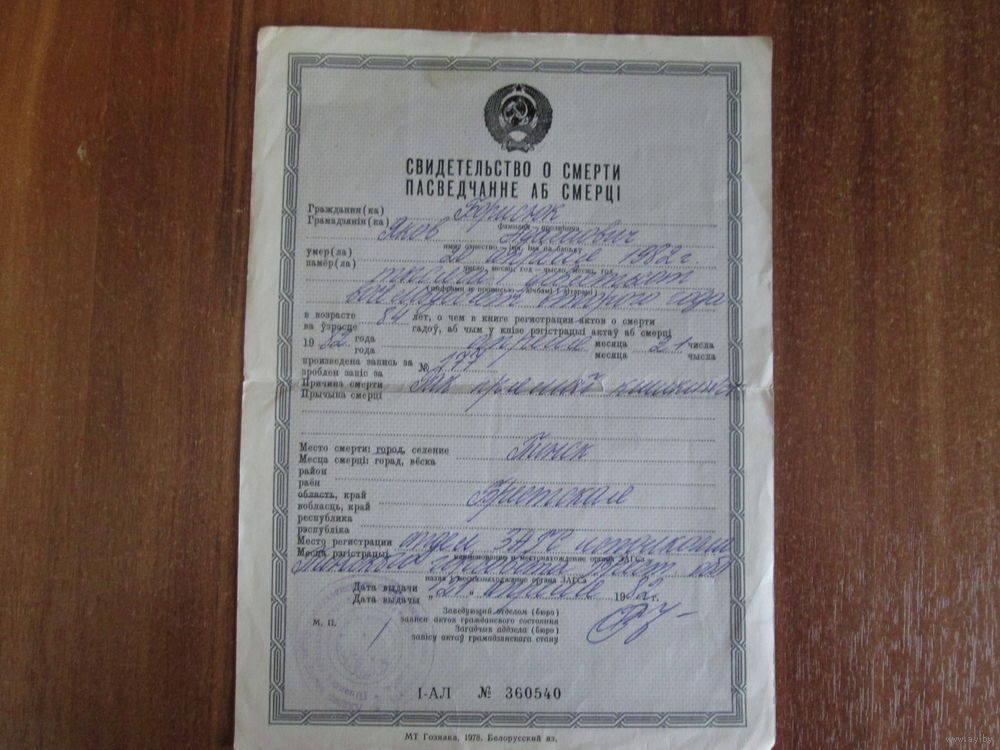 СВИДЕТЕЛЬСТВО О СМЕРТИ
ПАСВЕДЧАННЕ АБ СМЕРЦІ
Гражданин(ка) Борисюк
Грамадзянін(ка)
фамилия — прозвішча
Яков Адамович
имя, отчество — імя, імя па бацьку
умер(ла) 20 апреля 1982 г
памёр(ла)
число, месяц, год — чысло, месяц, год
тысяча девятьсот
(цифрами и прописью — лічбамі і літарамі)
восемьдесят второго года
в возрасте 84 лет, о чем в книге регистрации актов о смерти
ва ўзросце гадоў, аб чым у кнізе рэгістрацыі актаў аб смерці
19 82 года апреля месяца 21 числа
года месяца чысла
произведена запись за № 177
зроблен запіс за
Причина смерти Рак прямой кишки
Прычына смерці
Место смерти: город, селение Пинск
Месца смерці: горад, вёска
район
раён
область, край Брестская
вобласць, край
республика
рэспубліка
Место регистрации отдел ЗАГС исполкома
Месца рэгістрацыі
наименование и местонахождение органа ЗАГСа
Пинского
назва і месцазнаходжанне органа ЗАГСа
Дата выдачи „ 21 “ апреля 1982 г.
Дата выдачы
Заведующий отделом (бюро)
записи актов гражданского состояния
Загадчык аддзела (бюро)
запісу актаў грамадзянскага стану
М. П.
I-АЛ № 360540
МТ Гознака, 1978. Белорусский яз.
www.ay.by